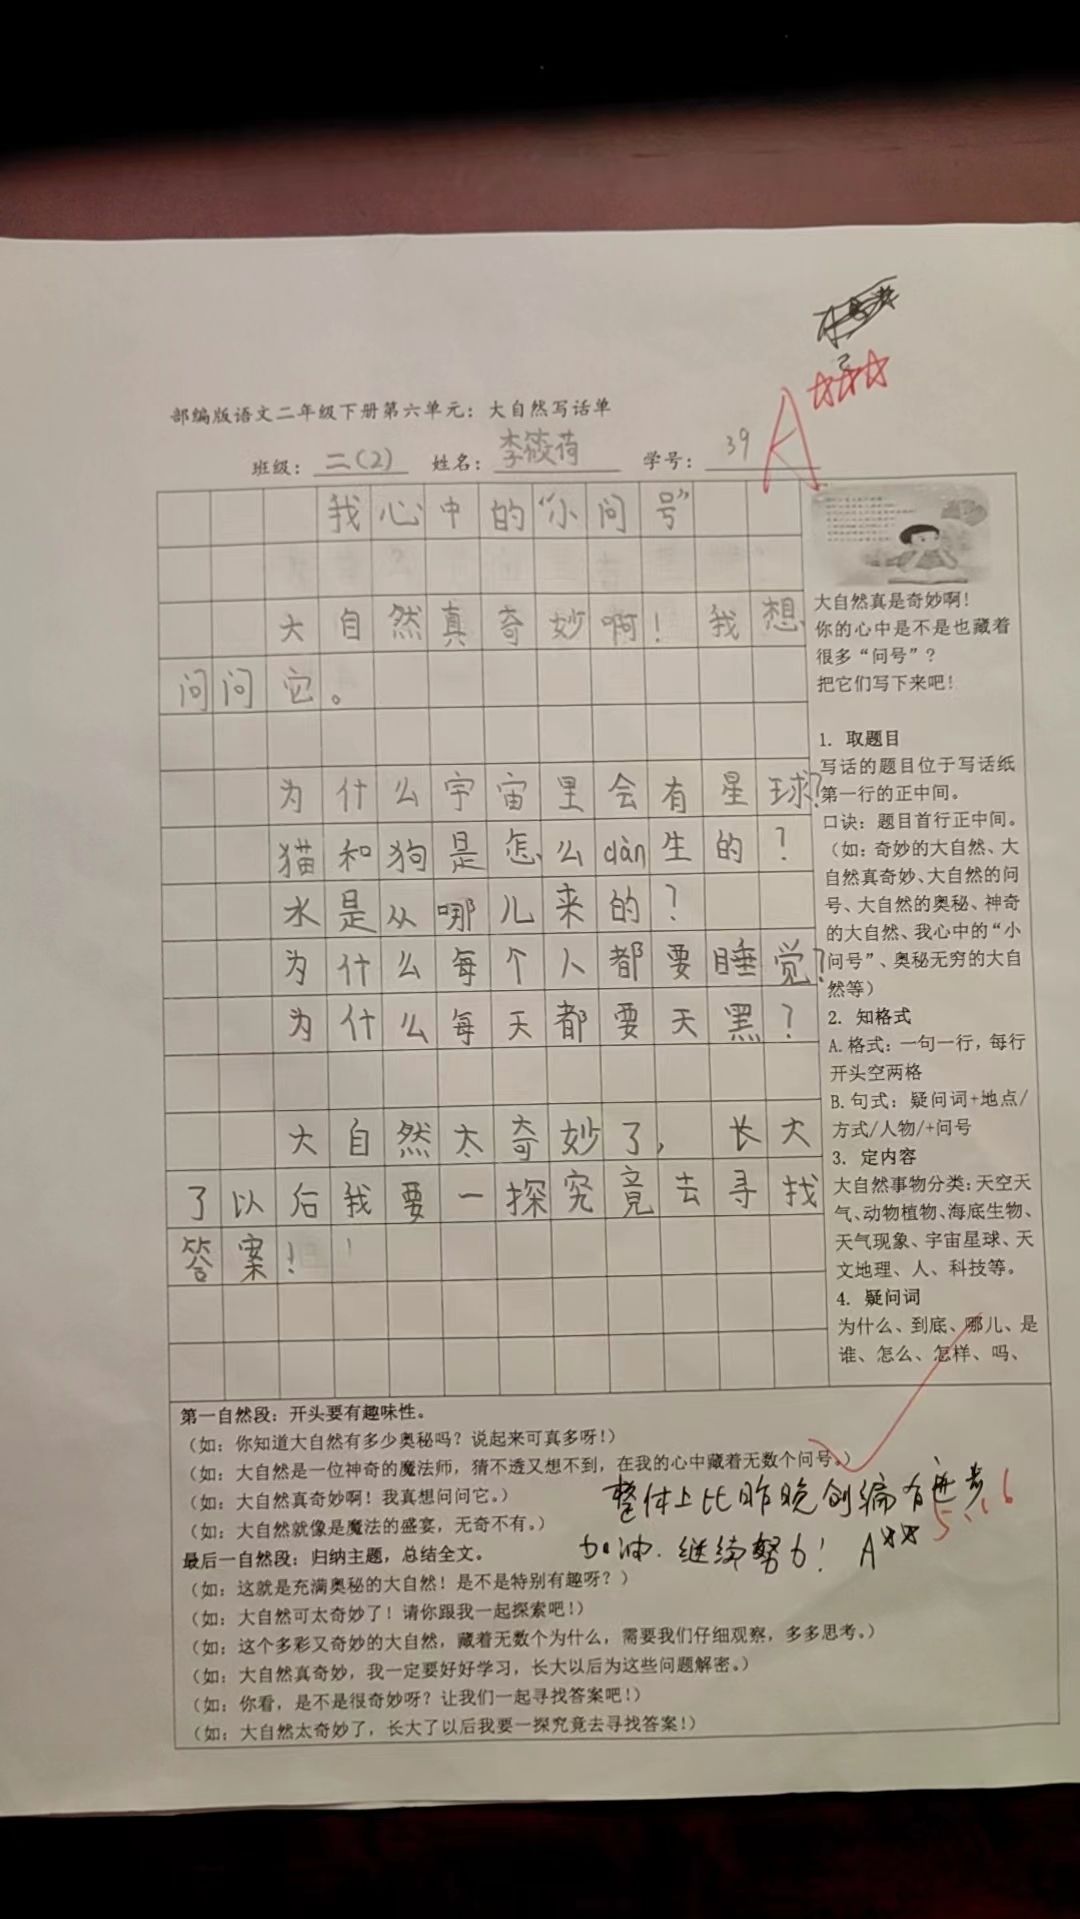 部编版语文二年级下册第六单元：大自然写话单
班级：二（2） 姓名：李筱荷 学号：39
A
我心中的“小问号”
大自然真奇妙啊！我想
问问它。
为什么宇宙里会有星球？
猫和狗是怎么dàn生的？
水是从哪儿来的？
为什么每个人都要睡觉？
为什么每天都要天黑？
大自然太奇妙了，长大
了以后我要一探究竟去寻找
答案！
大自然真是奇妙啊！
你的心中是不是也藏着
很多“问号”？
把它们写下来吧！
1. 取题目
写话的题目位于写话纸
第一行的正中间。
口诀：题目首行正中间。
（如：奇妙的大自然、大
自然真奇妙、大自然的问
号、大自然的奥秘、神奇
的大自然、我心中的“小
问号”、奥秘无穷的大自
然等）
2. 知格式
A.格式：一句一行，每行
开头空两格
B.句式：疑问词+地点/
方式/人物/+问号
3. 定内容
大自然事物分类：天空天
气、动物植物、海底生物、
天气现象、宇宙星球、天
文地理、人、科技等。
4. 疑问词
为什么、到底、哪儿、是
谁、怎么、怎样、吗、
第一自然段：开头要有趣味性。
（如：你知道大自然有多少奥秘吗？说起来可真多呀！）
（如：大自然是一位神奇的魔法师，猜不透又想不到，在我的心中藏着无数个问号。）
（如：大自然真奇妙啊！我真想问问它。）
（如：大自然就像是魔法的盛宴，无奇不有。）
最后一自然段：归纳主题，总结全文。
（如：这就是充满奥秘的大自然！是不是特别有趣呀？）
（如：大自然可太奇妙了！请你跟我一起探索吧！）
（如：这个多彩又奇妙的大自然，藏着无数个为什么，需要我们仔细观察，多多思考。）
（如：大自然真奇妙，我一定要好好学习，长大以后为这些问题解密。）
（如：你看，是不是很奇妙呀？让我们一起寻找答案吧！）
（如：大自然太奇妙了，长大了以后我要一探究竟去寻找答案！）
整体上比昨晚创编有进步
加油.继续努力！A
5.16